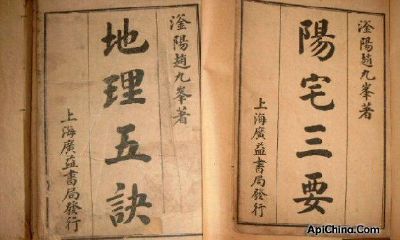 滏陽趙九峯著
陽宅三要
上海廣益書局發行
滏陽趙九峯著
地理五訣
上海廣益書局發行
ApiChina.Com